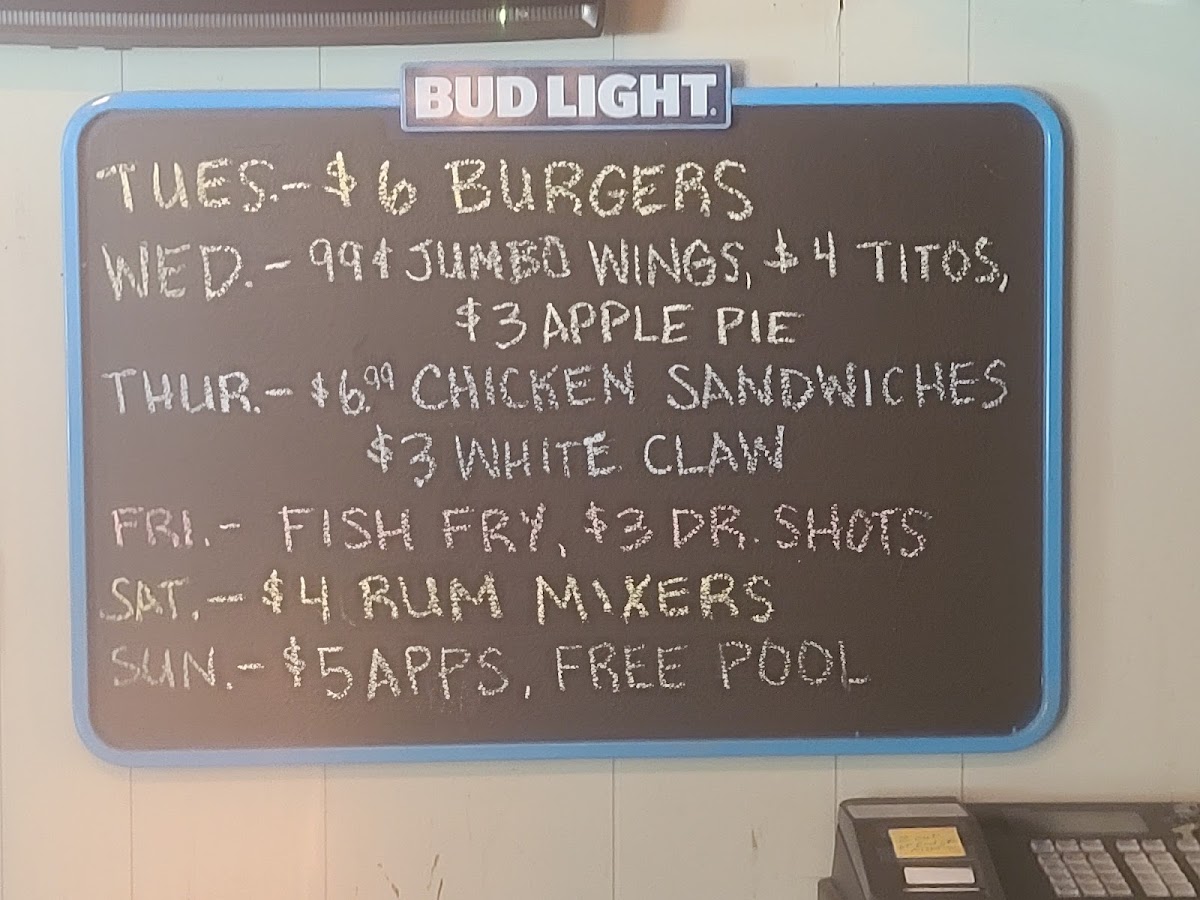 BUD LIGHT.
TUES.-$6 BURGERS
WED.-99¢ JUMBO WINGS, $4 TITOS,
$3 APPLE PIE
THUR.-$6.99 CHICKEN SANDWICHES
$3 WHITE CLAW
FRI.- FISH FRY, $3 DR. SHOTS
SAT.-$4 RUM MIXERS
SUN.-$5 APPS, FREE POOL